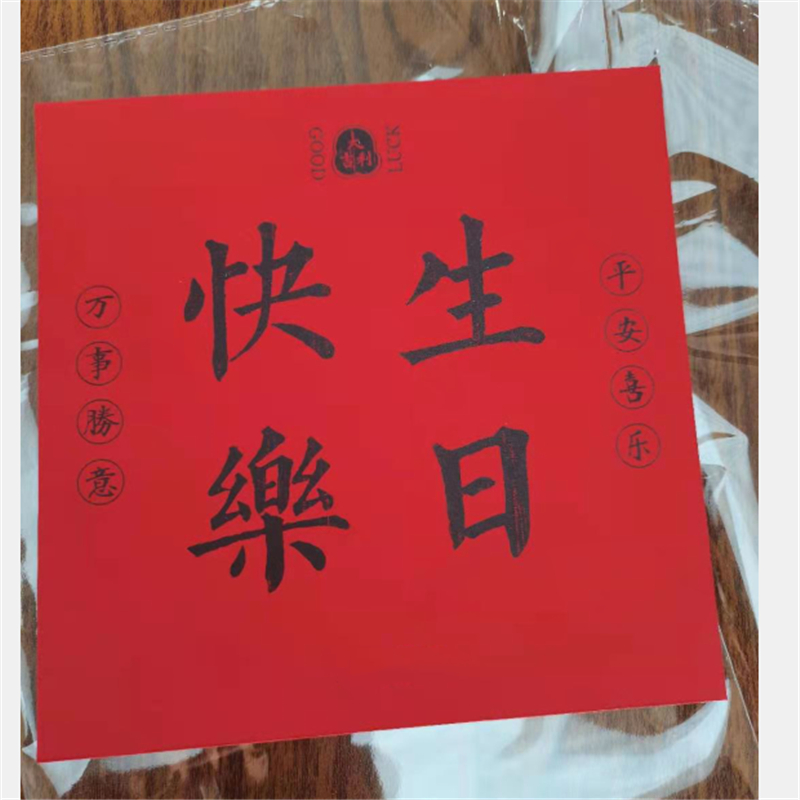 GOOD
大吉利
LUCK
生日
快樂
平安喜乐
万事勝意